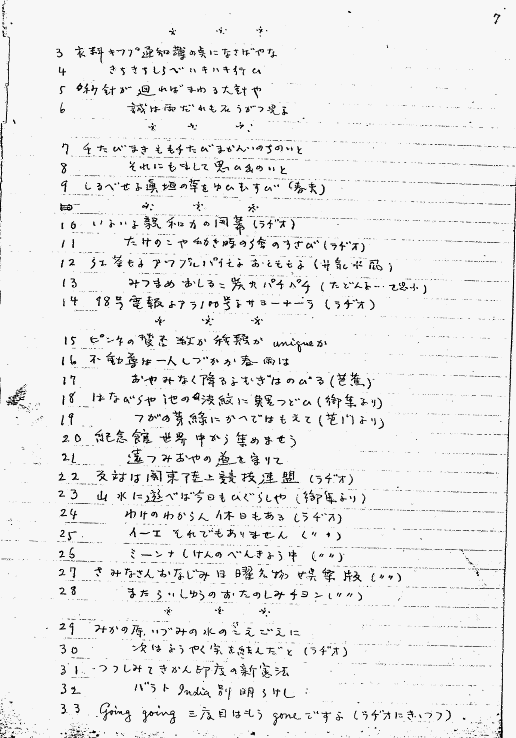 7
3 衣料キップ通知簿の
4 きちきちしらべハキハキ行ひ
5 秒針が廻ればまわる大針や
6 誠は雨だれも
7 千たびまきもも千たびまかん いのちのいと
8 それにもまして思ひ出のいと
9 しるべせよ 垣の草をゆひむすび (春夫)
10 いよいよ親和力の開幕 (ラヂオ)
11 たけのこや幼き時の絵のすさび (ラヂオ)
12 紅茶もよアツプルパイもよ おともよ
13 みつまめ おしるこ 炭火パチパチ
14 98号電報よアラ100号よサヨーナーラ (ラヂオ)
15 ピンチの か か uniqueか
16 不動尊は一人しづかか春雨は
17 おやみなく降るよむぎはのびる (芭蕉)
18 はなびらや池の波紋に つどひ (御集より)
19 つがの芽緑にかへではもえて (芭門より)
20 紀念館 世界中から集めませう
21 遠つみおやの道を守りて
22 反対は関東陸上競技連盟 (ラヂオ)
23 山水に遊べば今日もひぐらしや (御集より)
24 わけのわからん休日もある (ラヂオ)
25 イーエ それでもありません (〃〃)
26 ミーンナ しけんのべんきょう中 (〃〃)
27 さみなさんおなじみ日曜名物娯楽版 (〃〃)
28 またらいしゅうのおたのしみチヨン (〃〃)
29 みかの原 いづみの水のこえごえに
30 次はようやく実を結んだと (ラヂオ)
31 つつしみてきかん印度の新憲法
32 バラト India 別明らけし
33 Going going 三度目はもう goneですよ (ラヂオにきゝつつ).